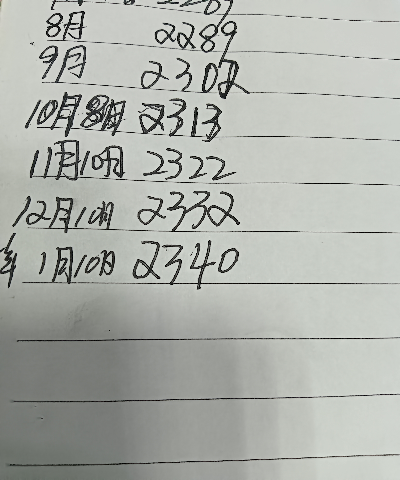 8月 2289
9月 2302
10月8月 2313
11月10月 2322
12月10月 2332
年 1月10月 2340